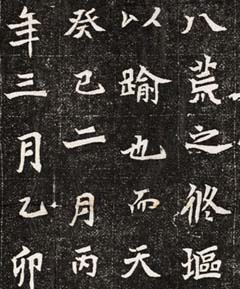 八荒之脩堰
以踰也而天
癸巳二月丙
年三月乙卯